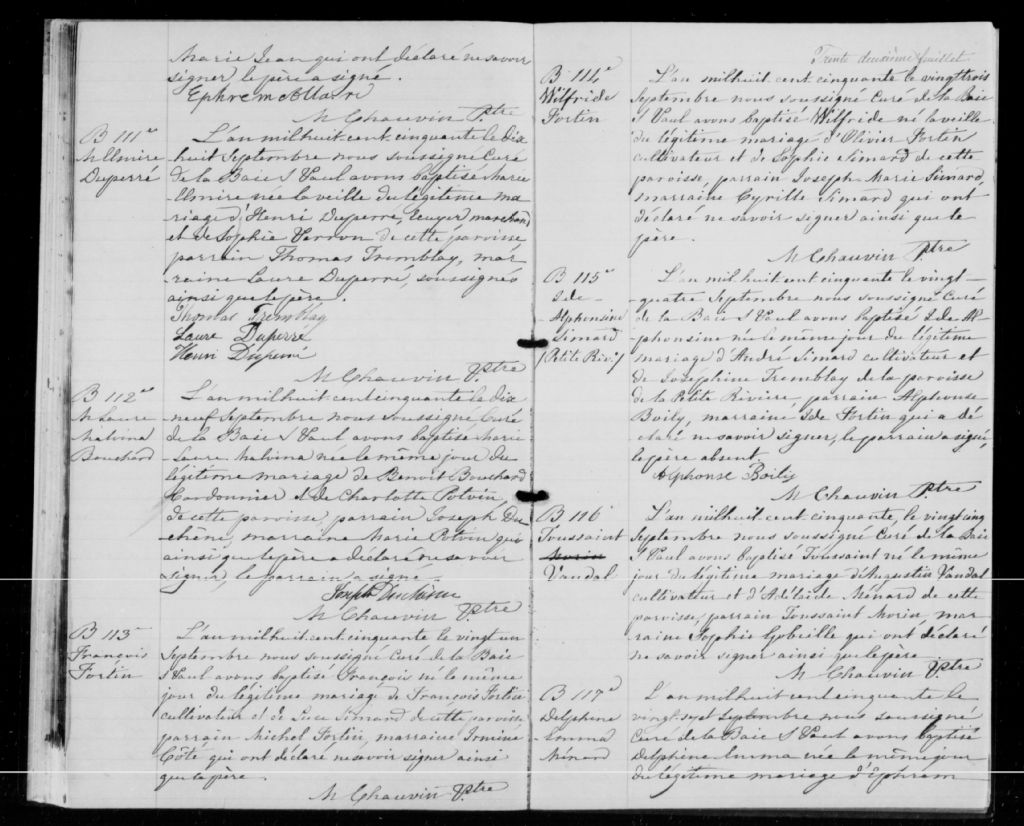 Marie Jean qui ont déclaré ne savoir
signer le père a signé.
Ephrem Allaire
M Chauvin Ptre
B 111e
M Elmire
Duperré
L'an mil huit cent cinquante le dix
huit Septembre nous soussigné Curé
de la Baie St Paul avons baptisé Marie
Elmire née la veille du légitime ma
riage d'Henri Duperré, Ecuyer marchand
et de Sophie Verdon de cette paroisse
parrain Thomas Tremblay, mar
raine Laure Duperré, soussignés
ainsi que le père.
Thomas Tremblay
Laure Duperré
Henri Duperré
M Chauvin Ptre
B 112e
M Laure
Malvina
Bouchard
L'an mil huit cent cinquante le dix
neuf Septembre nous soussigné Curé
de la Baie St Paul avons baptisé Marie
Laure Malvina née le même jour du
légitime mariage de Benoit Bouchard
Cordonnier et de Charlotte Potvin
de cette paroisse, parrain Joseph Du
chêne, marraine Marie Potvin qui
ainsi que le père a déclaré ne savoir
signer, le parrain a signé.
Joseph Duchesne
M Chauvin Ptre
B 113e
François
Fortin
L'an mil huit cent cinquante le vingt un
Septembre nous soussigné Curé de la Baie
St Paul avons baptisé François né le même
jour du légitime mariage de François Fortin
cultivateur et de Luce Simard de cette paroisse
parrain Michel Fortin, marraine
Côté qui ont déclaré ne savoir signer ainsi
que le père
M Chauvin Ptre
Trente deuxième feuillet
B 114e
Wilfride
Fortin
L'an mil huit cent cinquante le vingt trois
Septembre nous soussigné Curé de la Baie
St Paul avons baptisé Wilfride né la veille
du légitime mariage d'Olivier Fortin
cultivateur et de Sophie Simard de cette
paroisse, parrain Joseph Marie Simard,
marraine Cyrille Simard qui ont
déclaré ne savoir signer ainsi que le
père.
M Chauvin Ptre
B 115e
Ide
Alphonsine
Simard
(Petite Riv.)
L'an mil huit cent cinquante le vingt
quatre Septembre nous soussigné Curé
de la Baie St Paul avons baptisé Ide Al-
phonsine née le même jour du légitime
mariage d'André Simard cultivateur et
de Joséphine Tremblay de la paroisse
de la Petite Rivière, parrain Alphonse
Boily, marraine Ide Fortin qui a dé
claré ne savoir signer, le parrain a signé,
le père absent.
Alphonse Boily
M Chauvin Ptre
B 116
Toussaint
Morin
Vandal
L'an mil huit cent cinquante, le vingt cinq
Septembre nous soussigné Curé de la Baie
St Paul avons baptisé Toussaint né le même
jour du légitime mariage d'Augustin Vandal
cultivateur et d'Adélaïde Ménard de cette
paroisse, parrain Toussaint Morin, mar
raine Sophie Gobeille qui ont déclaré
ne savoir signer ainsi que le père
M Chauvin Ptre
B 117e
Delphine
Emma
Ménard
L'an mil huit cent cinquante le
vingt sept Septembre nous soussigné
Curé de la Baie St Paul avons baptisé
Delphine Emma née le même jour
du légitime mariage d'Ephrem